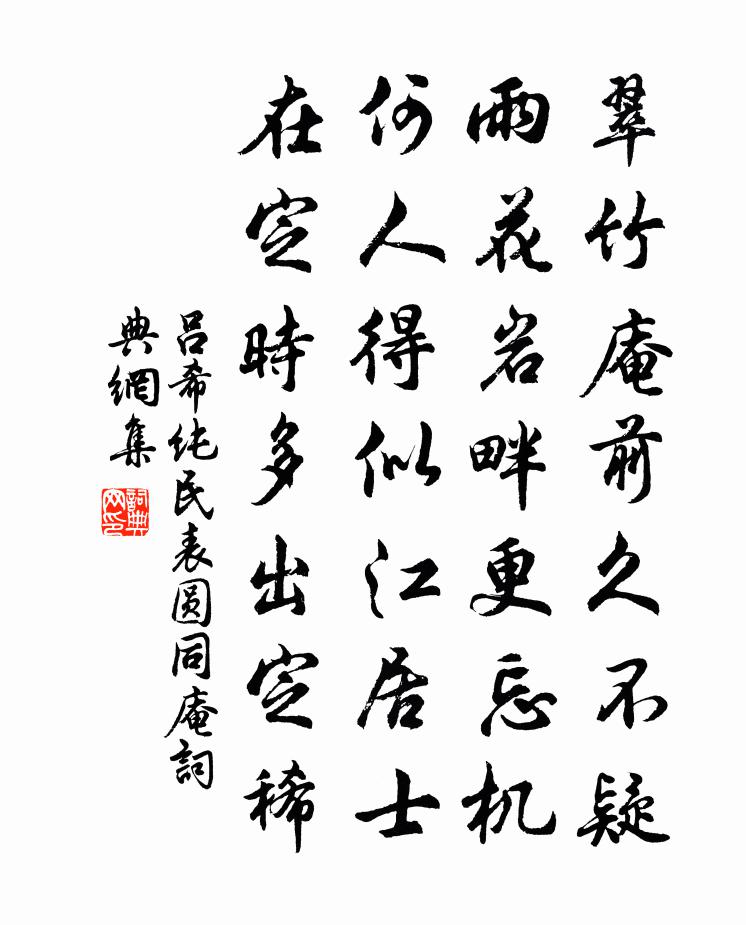 翠竹庵前久不疑
雨花岩畔更忘机
何人得似江居士
在定時多出定稀
吕希纯民表圆同庵詞
典網集
詞典
网印